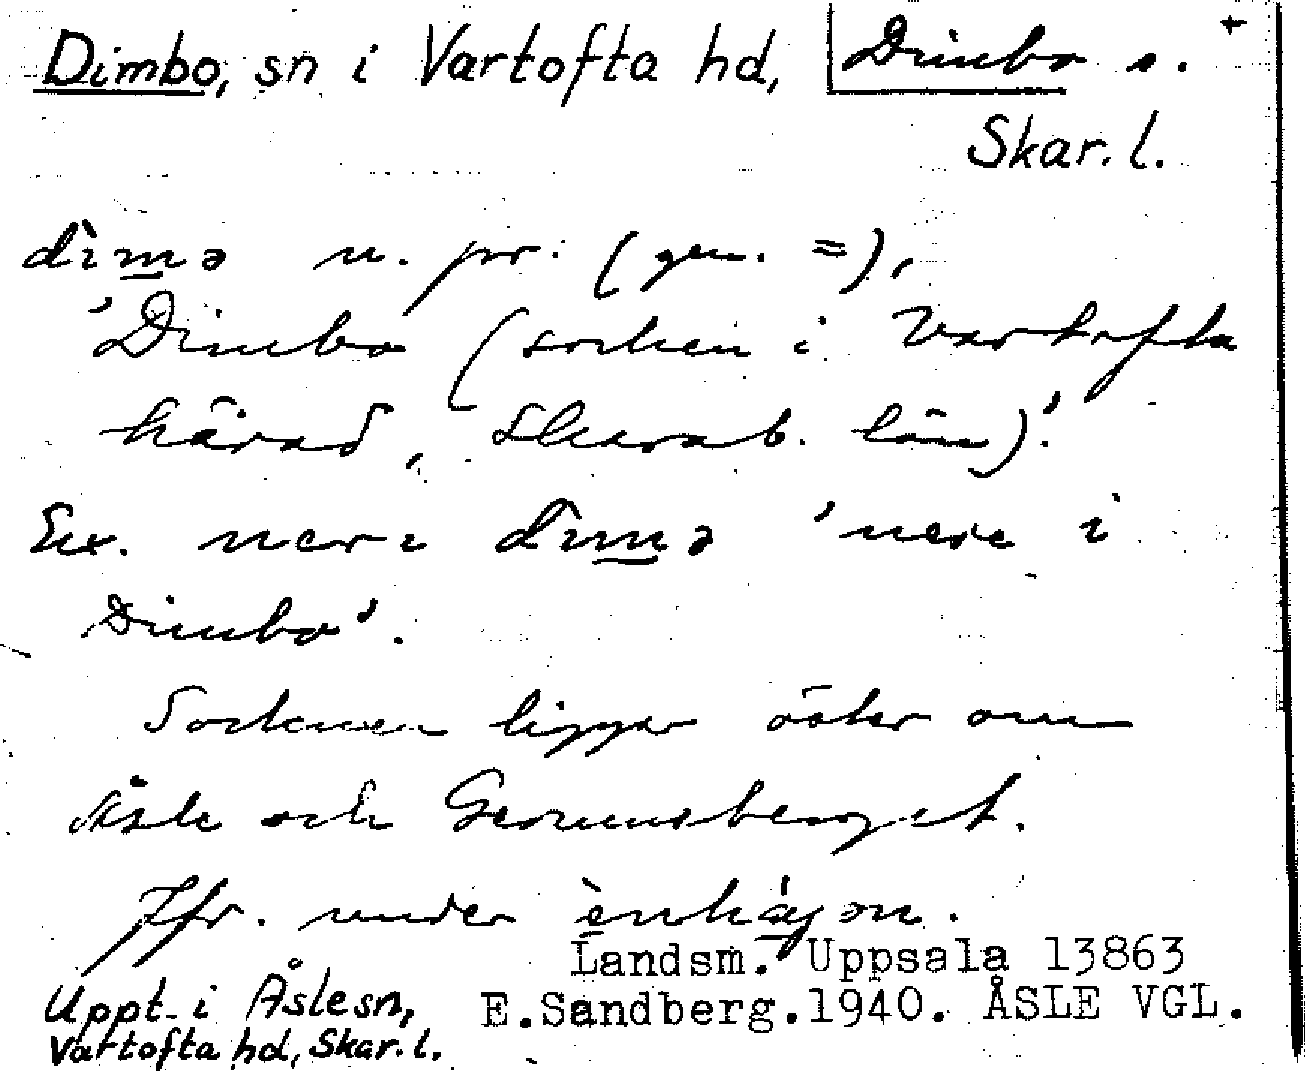 Dimbo, sn i Vartofta hd, Dimbo s. +
Skar. l.
dìmə n. pr. (gen. =),
'Dimbo (socken i Vartofta
härad, Skarab. län).'
Ex. neri dìmə 'nere i
Dimbo'.
Socknen ligger öster om
Åsle och Gerumsberget.
Jfr. under
Landsm. Uppsala 13863
Uppt. i Åsle sn, E.Sandberg.1940. ÅSLE VGL.
Vartofta hd, Skar. l.